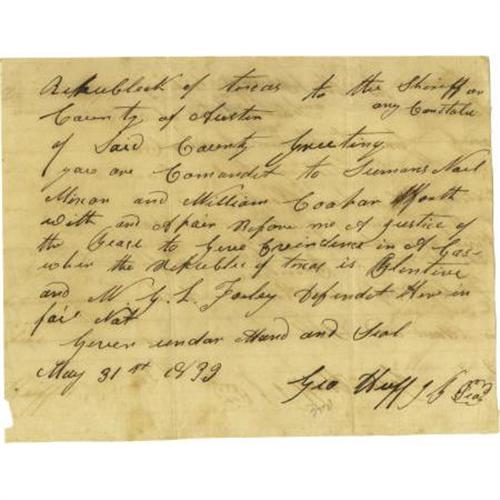 Republeck of texas to the Sheriff or
County of Austin any Constable
of Said County Greeting
you are Comandet to Sumans Noel
Mixon and William Coopar
with and Apair Before me A Justice of
the Pease to Give Eveindence in A Cas
when the Republic of texas is Plentive
and W. G. L. Foxley Defendet Here in
fail Not
Given undar Hand and Seal
May 31st 1839
Geo Huff J P Seal